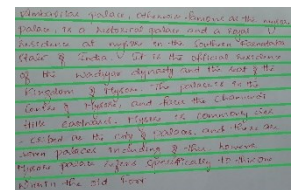 palace, is a historical palace and a royal
residence at Mysore in the southern Karnataka
State of India. It is the official residence
of the Wadiyar dynasty and the seat of the
Kingdom of Mysore. The palace is in the
centre of Mysore, and faces the Chamundi
Hills eastward. Mysore is commonly des
cribed as the city of palaces, and there are
seven palaces including this, however
Mysore palace refers specifically to this one
within the old fort